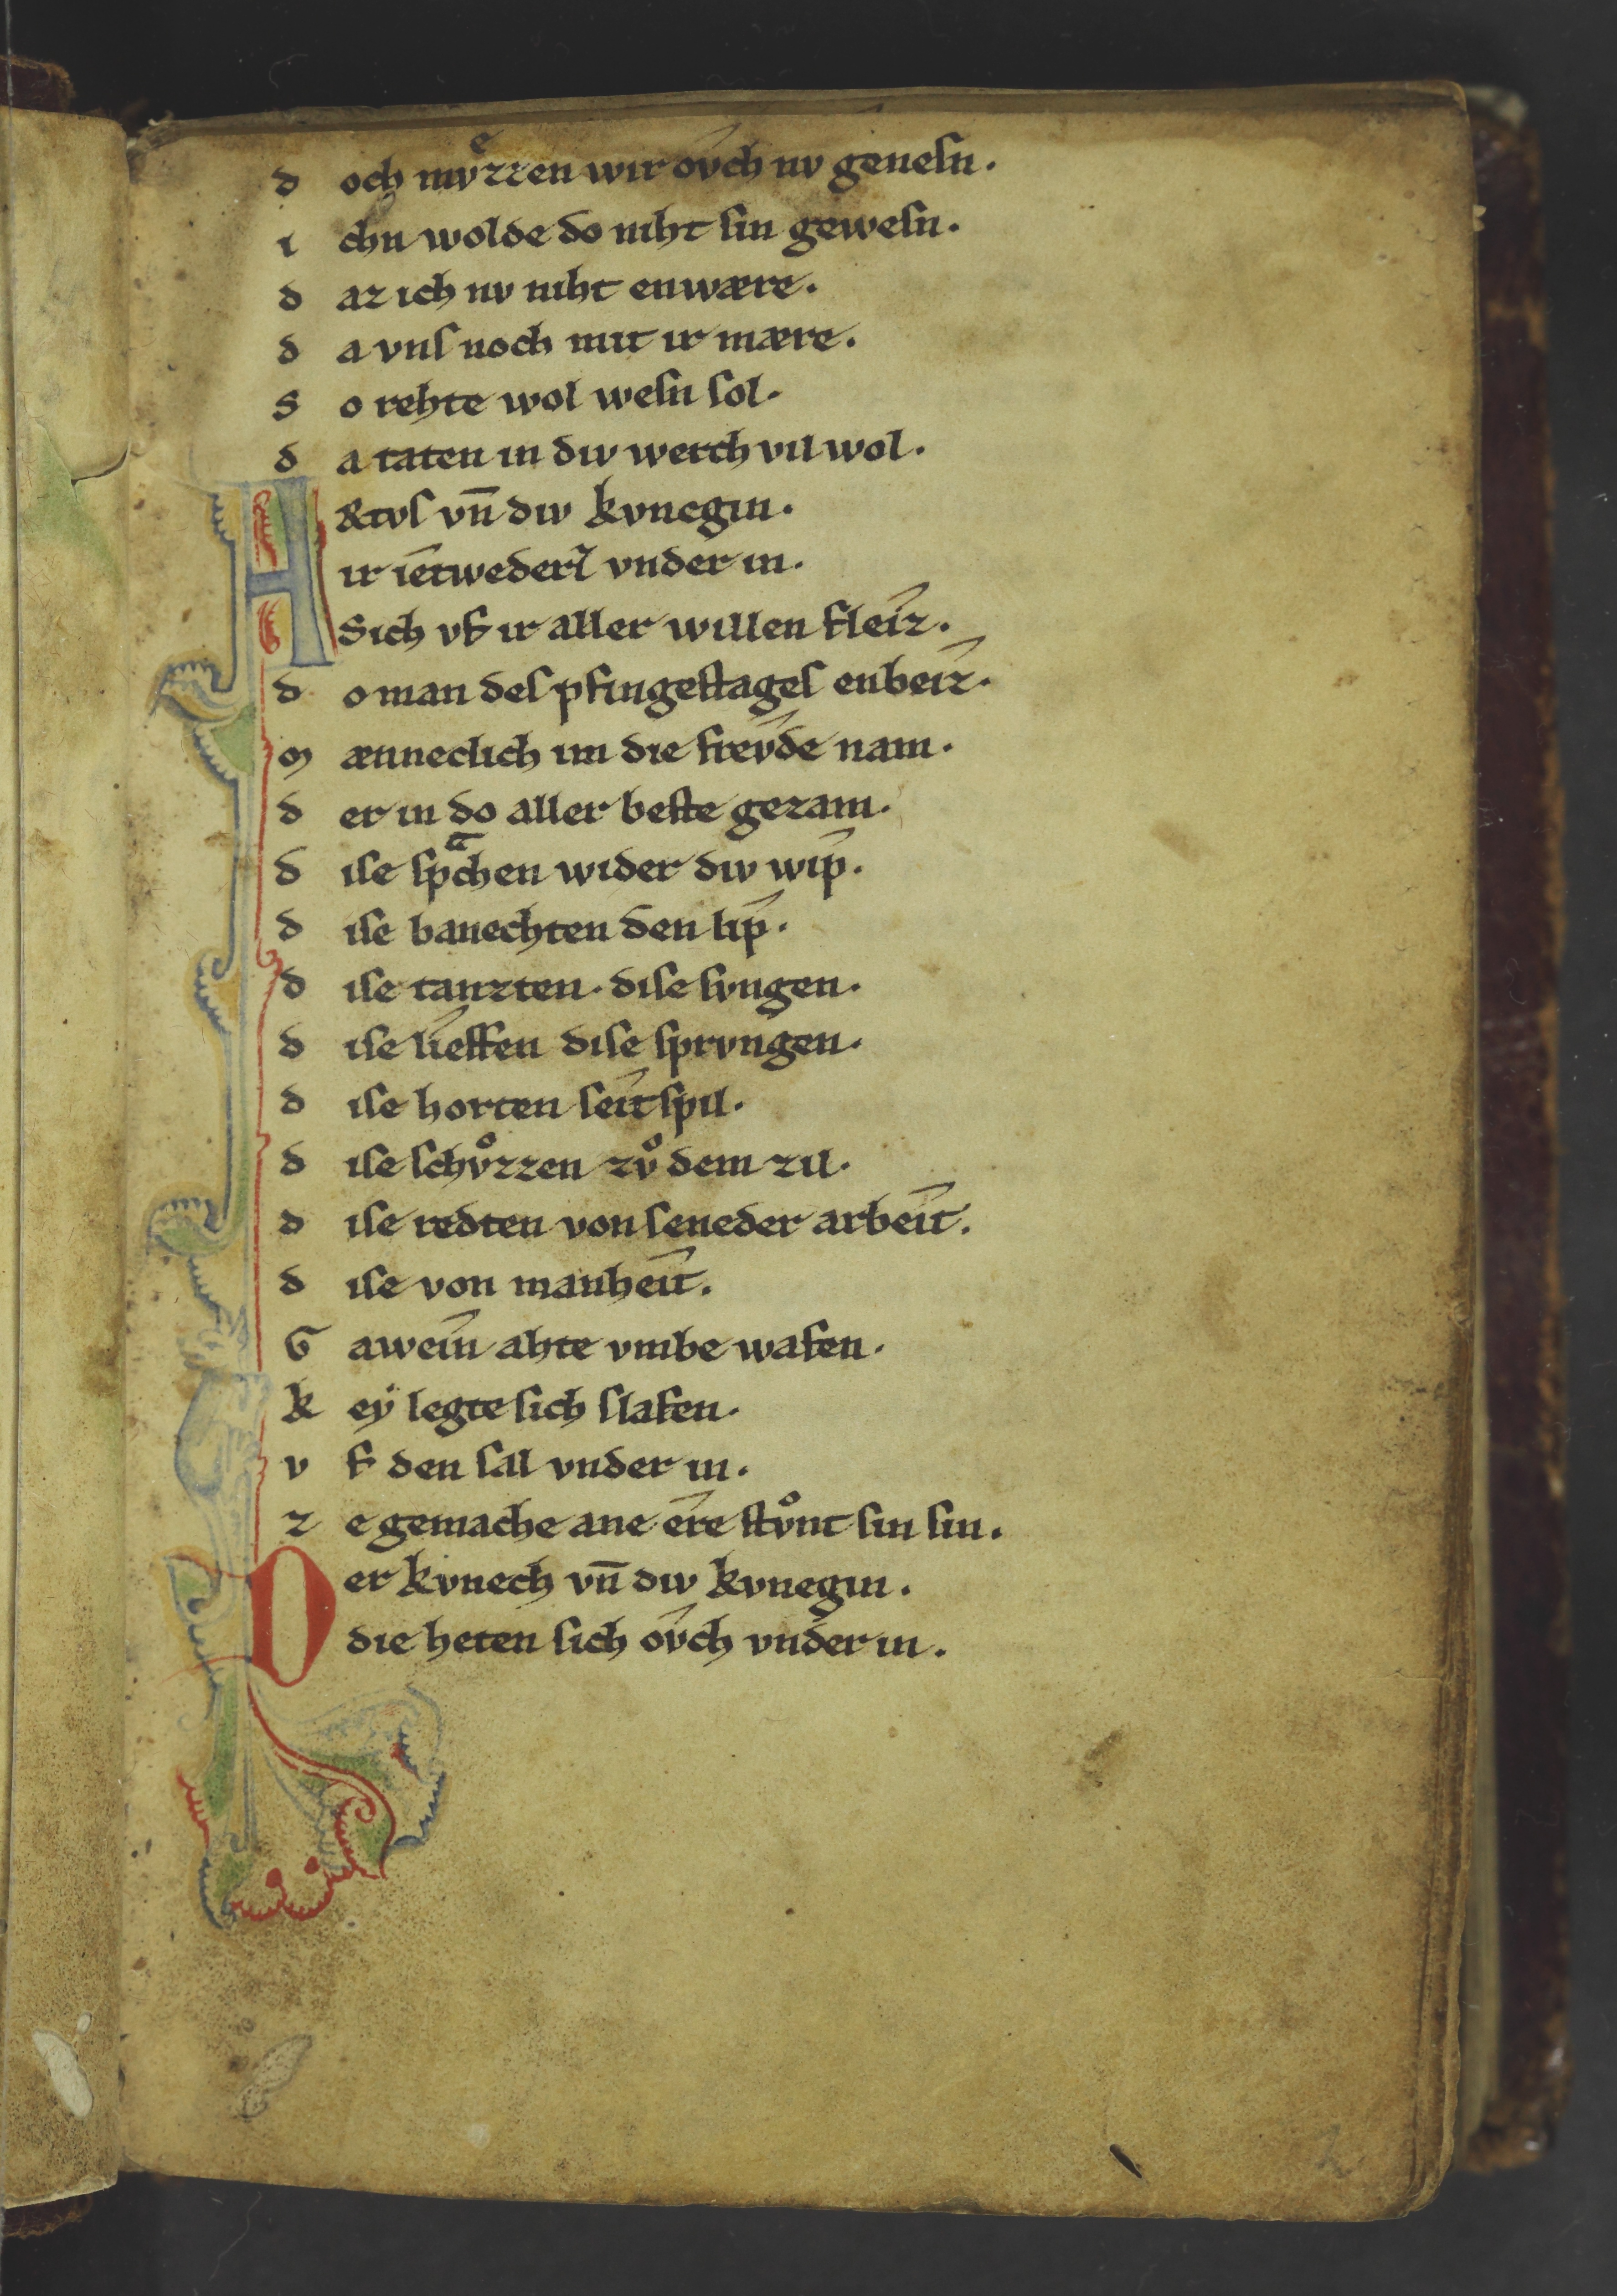 d och mvͤzzen wir ovch nv geneſn.
i chn wolde do niht ſin geweſn.
d az ich nv niht enwære.
d a vnſ noch mit ir mære.
S o rehte wol weſn ſol.
d a taten in div werch vil wol.
H &tvſ vn̄ div kvnegin.
ir ietwederſ vnder in.
Sich vf ir aller willen fleiz.
d o man deſ pfingeſtageſ enbeiz.
M ænneclich im die frevde nam.
d er in do aller beſte gezam.
d iſe ſpᵃchen wider div wip.
d iſe banechten den lip.
d iſe tanzten. diſe ſvngen.
d iſe lieffen diſe ſprvngen.
d iſe horten ſeitſpil.
d iſe ſchvͦzzen zvͦ dem zil.
d iſe redten von ſeneder arbeit.
d iſe von manheit.
G awein ahte vmbe wafen.
k eẏ legte ſich ſlafen.
v f den ſal vnder in.
z e gemache ane ere ſtvͦnt ſin ſin.
D er kvnech vn̄ div kvnegin.
die heten ſich ovch vnder in.
2